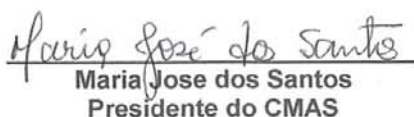 Maria José dos Santos
Maria Jose dos Santos
Presidente do CMAS